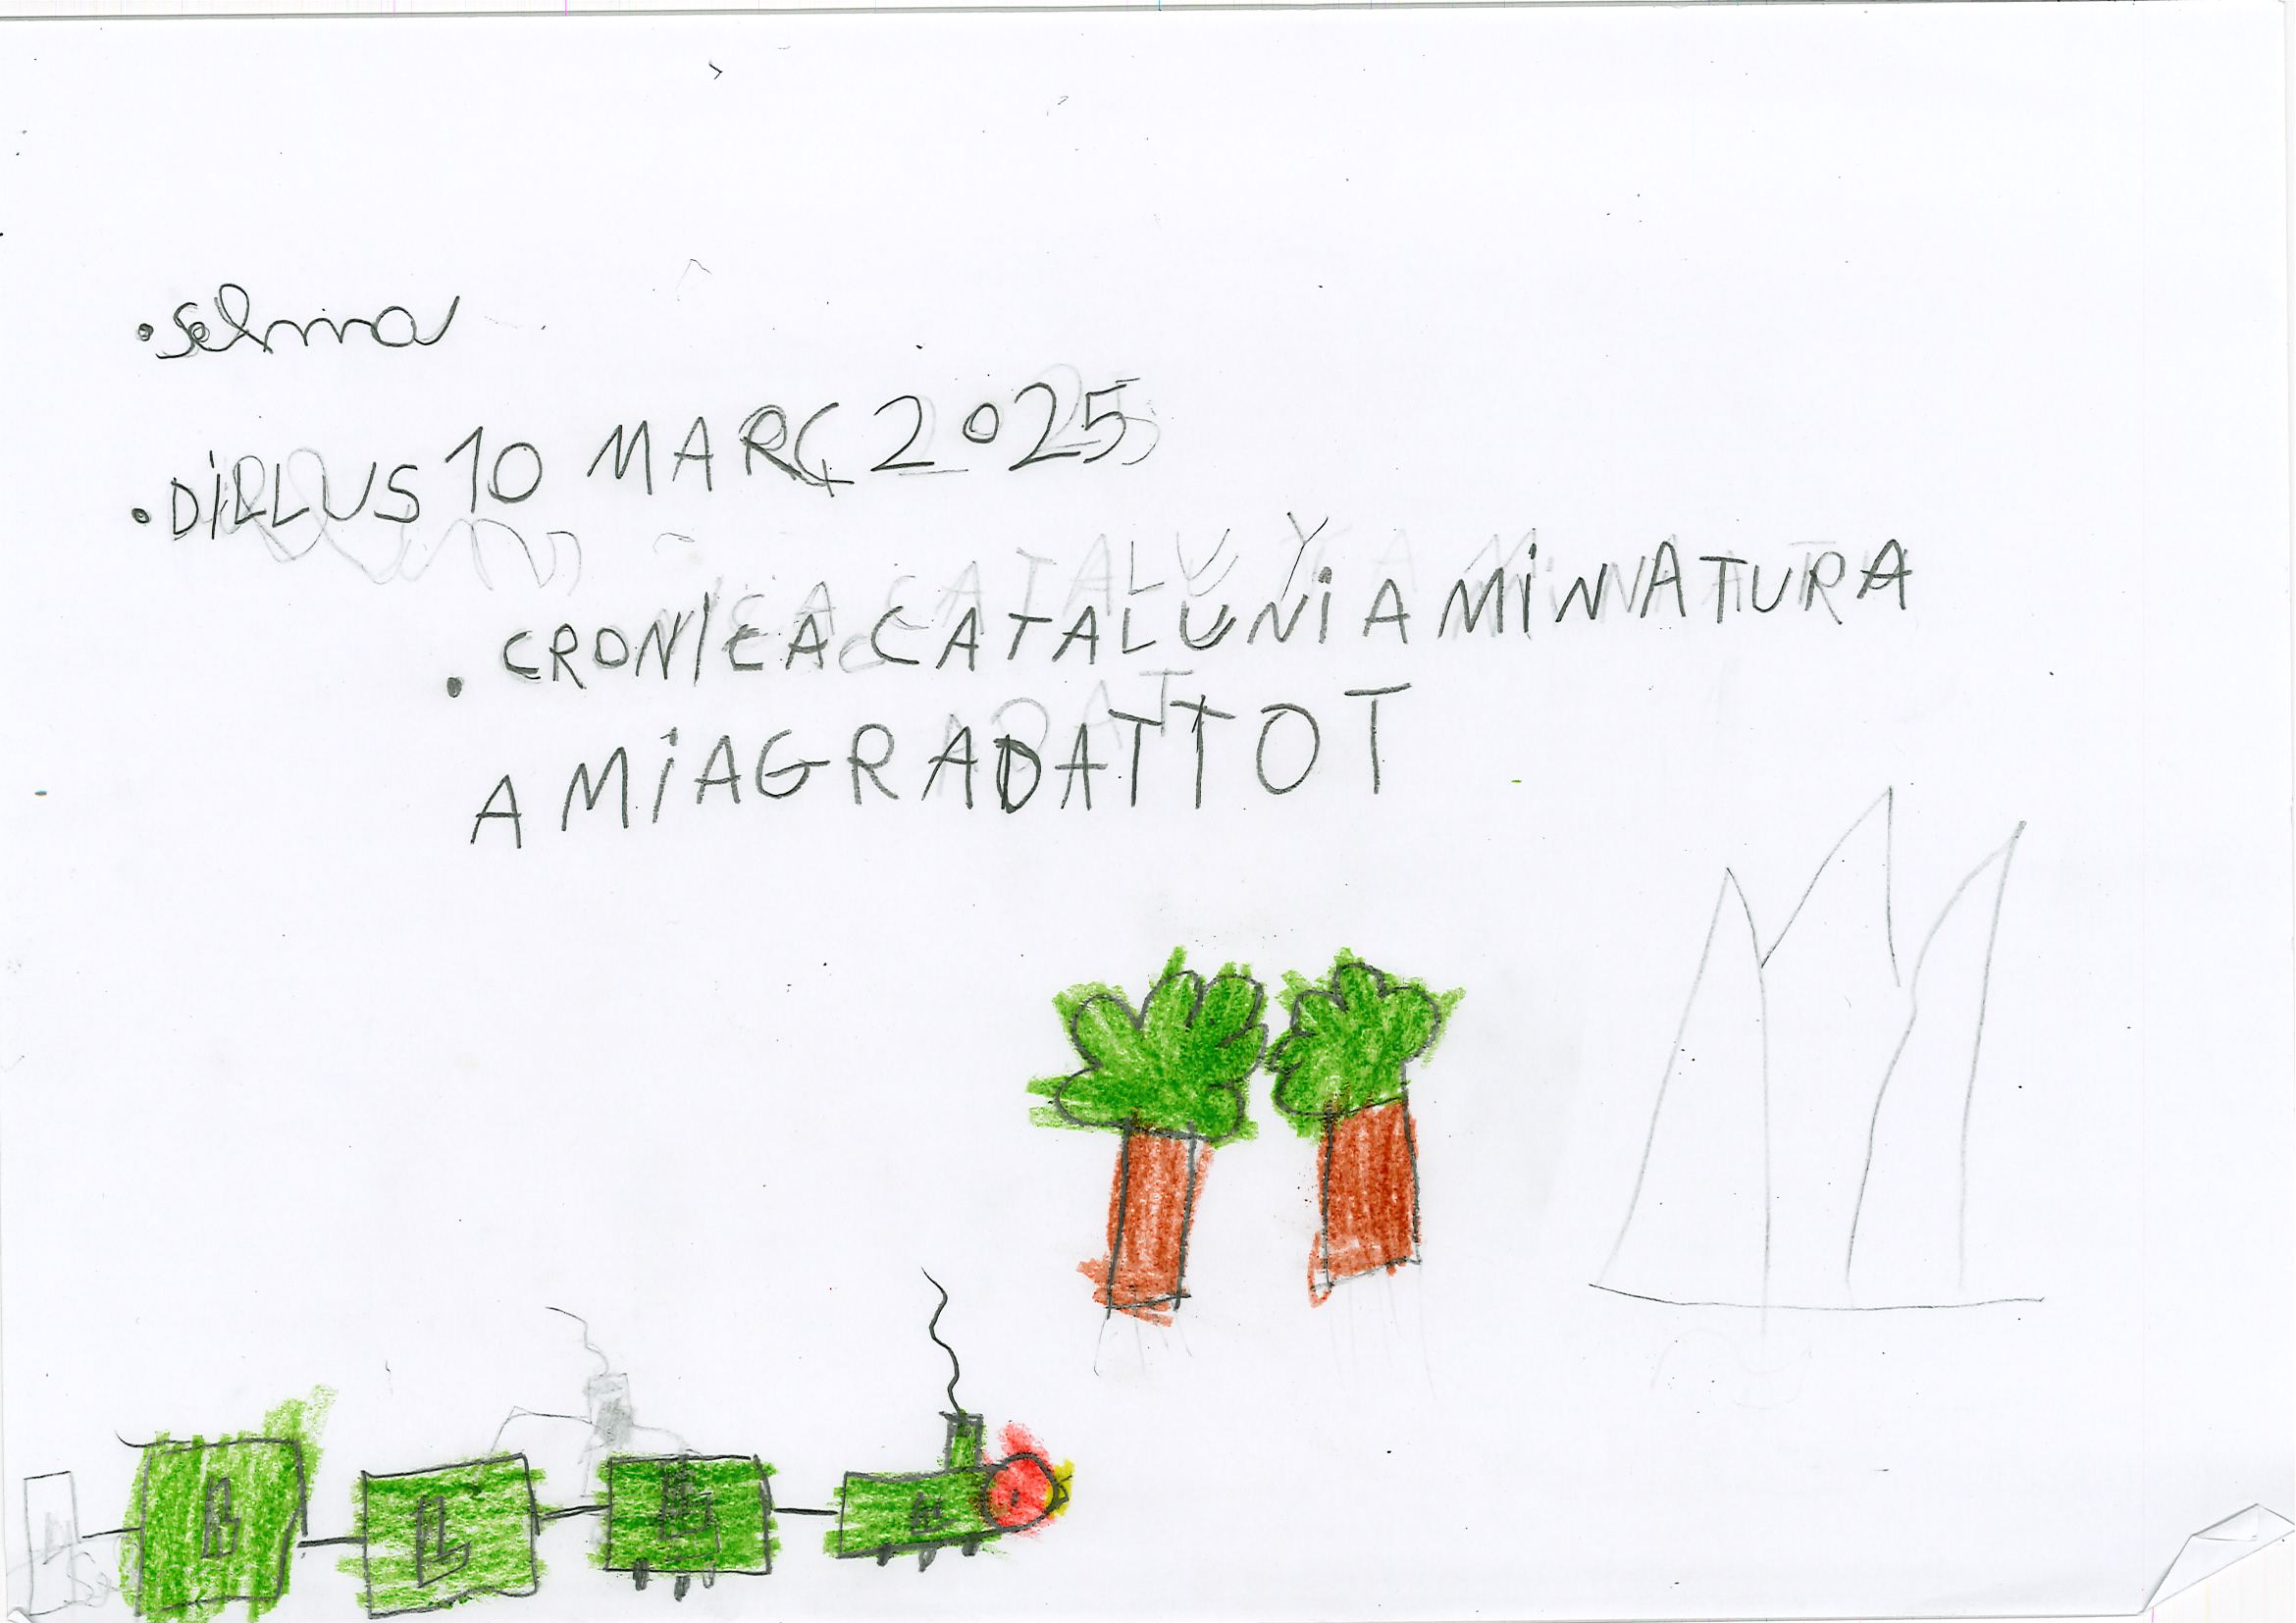 • Selma
• DILLUS 10 MARÇ 2025
• CRONICA CATALUNIA MINNATURA
A MI AGRADAT TOT